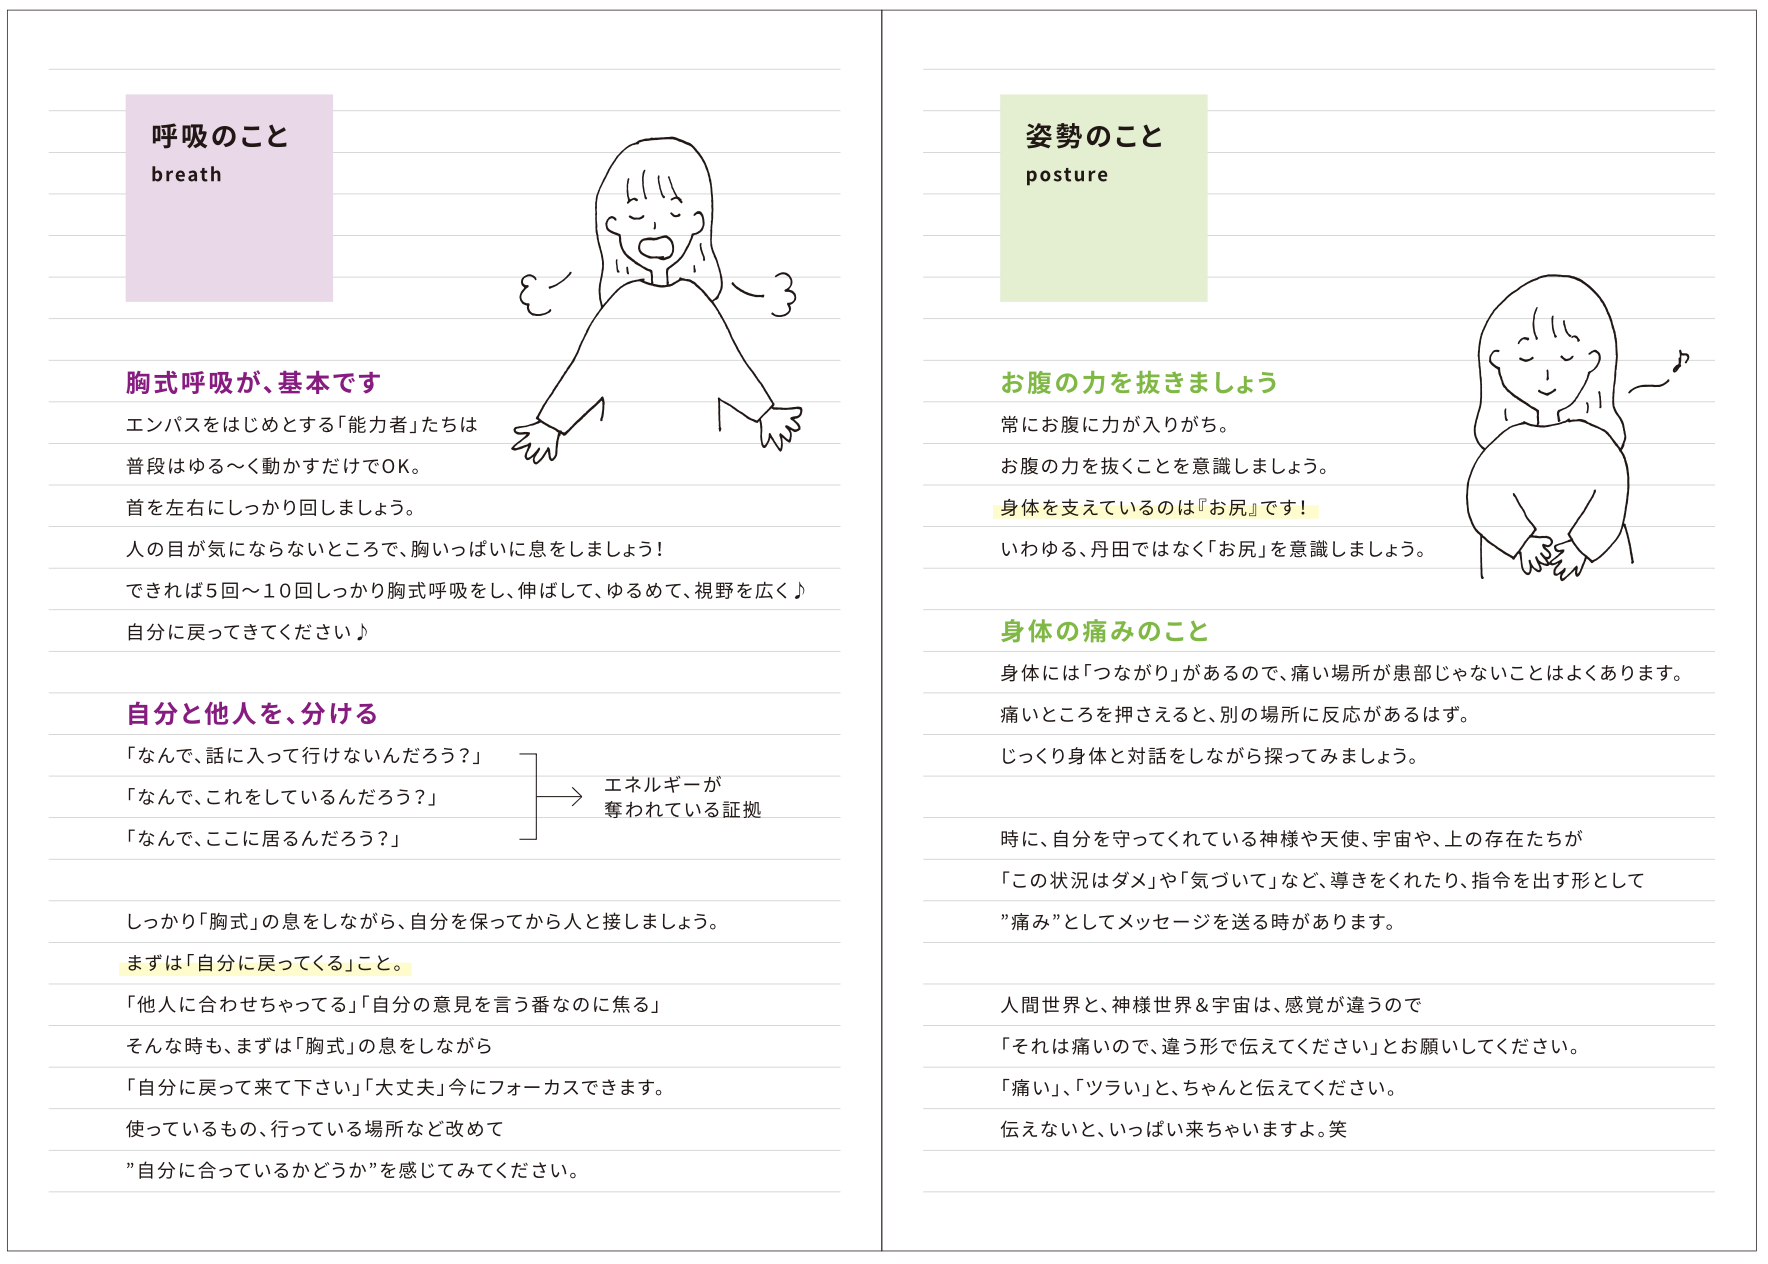 呼吸のこと
breath
胸式呼吸が、基本です
エンパスをはじめとする「能力者」たちは
普段はゆる〜く動かすだけでOK。
首を左右にしっかり回しましょう。
人の目が気にならないところで、胸いっぱいに息をしましょう！
できれば５回〜１０回しっかり胸式呼吸をし、伸ばして、ゆるめて、視野を広く♪
自分に戻ってきてください♪
自分と他人を、分ける
「なんで、話に入って行けないんだろう？」
「なんで、これをしているんだろう？」
「なんで、ここに居るんだろう？」
エネルギーが
奪われている証拠
しっかり「胸式」の息をしながら、自分を保ってから人と接しましょう。
まずは「自分に戻ってくる」こと。
「他人に合わせちゃってる」「自分の意見を言う番なのに焦る」
そんな時も、まずは「胸式」の息をしながら
「自分に戻って来て下さい」「大丈夫」今にフォーカスできます。
使っているもの、行っている場所など改めて
”自分に合っているかどうか”を感じてみてください。
姿勢のこと
posture
お腹の力を抜きましょう
常にお腹に力が入りがち。
お腹の力を抜くことを意識しましょう。
身体を支えているのは『お尻』です！
いわゆる、丹田ではなく「お尻」を意識しましょう。
身体の痛みのこと
身体には「つながり」があるので、痛い場所が患部じゃないことはよくあります。
痛いところを押さえると、別の場所に反応があるはず。
じっくり身体と対話をしながら探ってみましょう。
時に、自分を守ってくれている神様や天使、宇宙や、上の存在たちが
「この状況はダメ」や「気づいて」など、導きをくれたり、指令を出す形として
”痛み”としてメッセージを送る時があります。
人間世界と、神様世界＆宇宙は、感覚が違うので
「それは痛いので、違う形で伝えてください」とお願いしてください。
「痛い」、「ツラい」と、ちゃんと伝えてください。
伝えないと、いっぱい来ちゃいますよ。笑